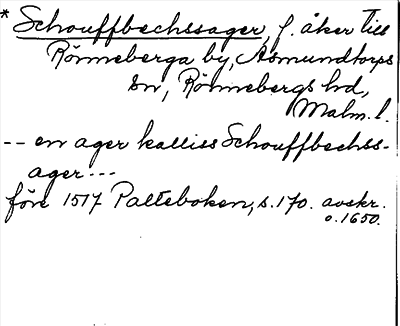 * Schouffbechssager, f. åker till
Rönneberga by, Asmundtorps
sn, Rönnebergs hd,
Malm. l.
-- en ager kalliss Schouffbechss-
ager ---
före 1517 Palteboken, s. 170. avskr.
o. 1650.